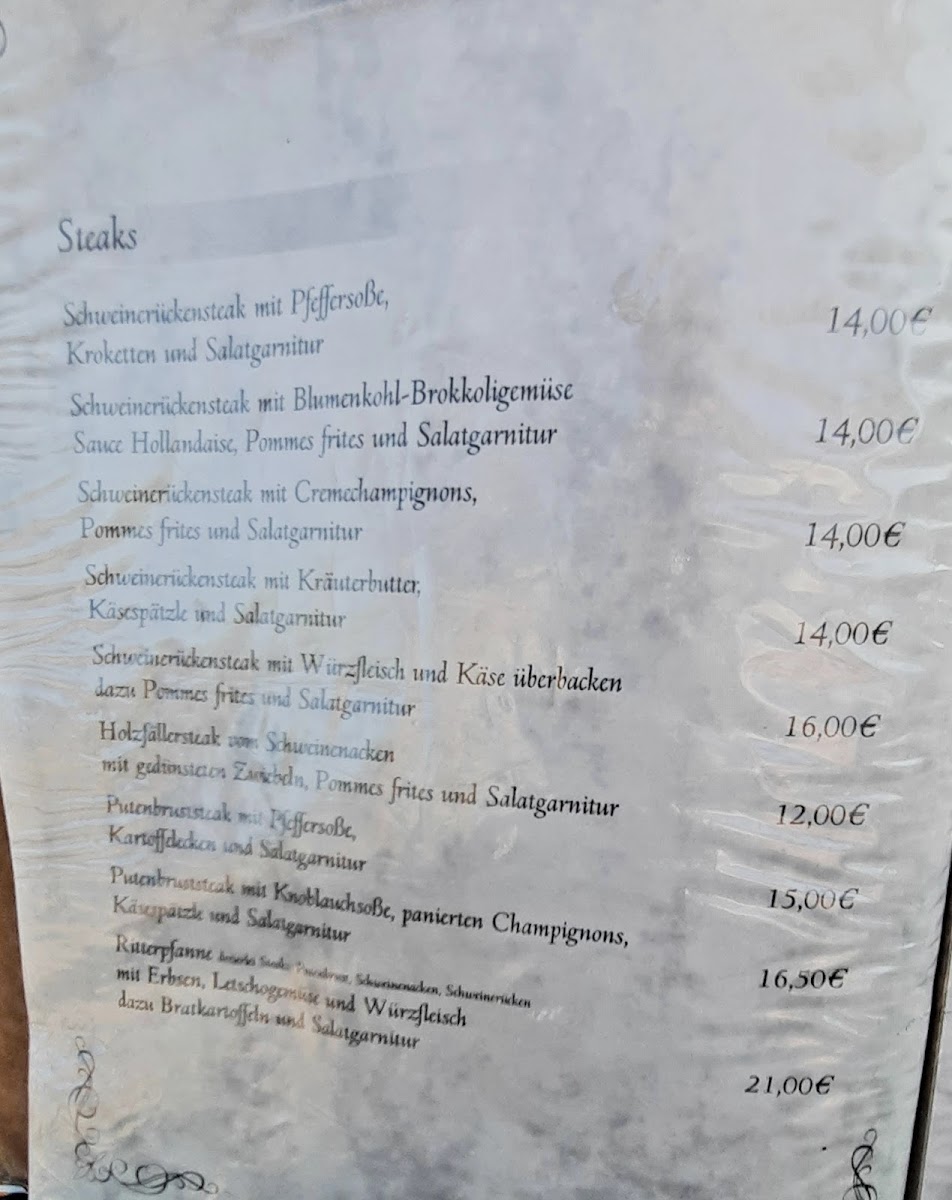 Steaks
Schweinerückensteak mit Pfeffersoße,
Kroketten und Salatgarnitur
14,00€
Schweinerückensteak mit Blumenkohl-Brokkoligemüse
Sauce Hollandaise, Pommes frites und Salatgarnitur
14,00€
Schweinerückensteak mit Cremechampignons,
Pommes frites und Salatgarnitur
14,00€
Schweinerückensteak mit Kräuterbutter,
Käsespätzle und Salatgarnitur
14,00€
Schweinerückensteak mit Würzfleisch und Käse überbacken
dazu Pommes frites und Salatgarnitur
16,00€
Holzfällersteak vom Schweinenacken
mit gedünsteten Zwiebeln, Pommes frites und Salatgarnitur
12,00€
Putenbruststeak mit Pfeffersoße,
Kartoffelecken und Salatgarnitur
15,00€
Putenbruststeak mit Knoblauchsoße, panierten Champignons,
Käsespätzle und Salatgarnitur
16,50€
Ritterpfanne Steaks, Putenbrust, Schweinenacken, Schweinerücken
mit Erbsen, Letschogemüse und Würzfleisch
dazu Bratkartoffeln und Salatgarnitur
21,00€